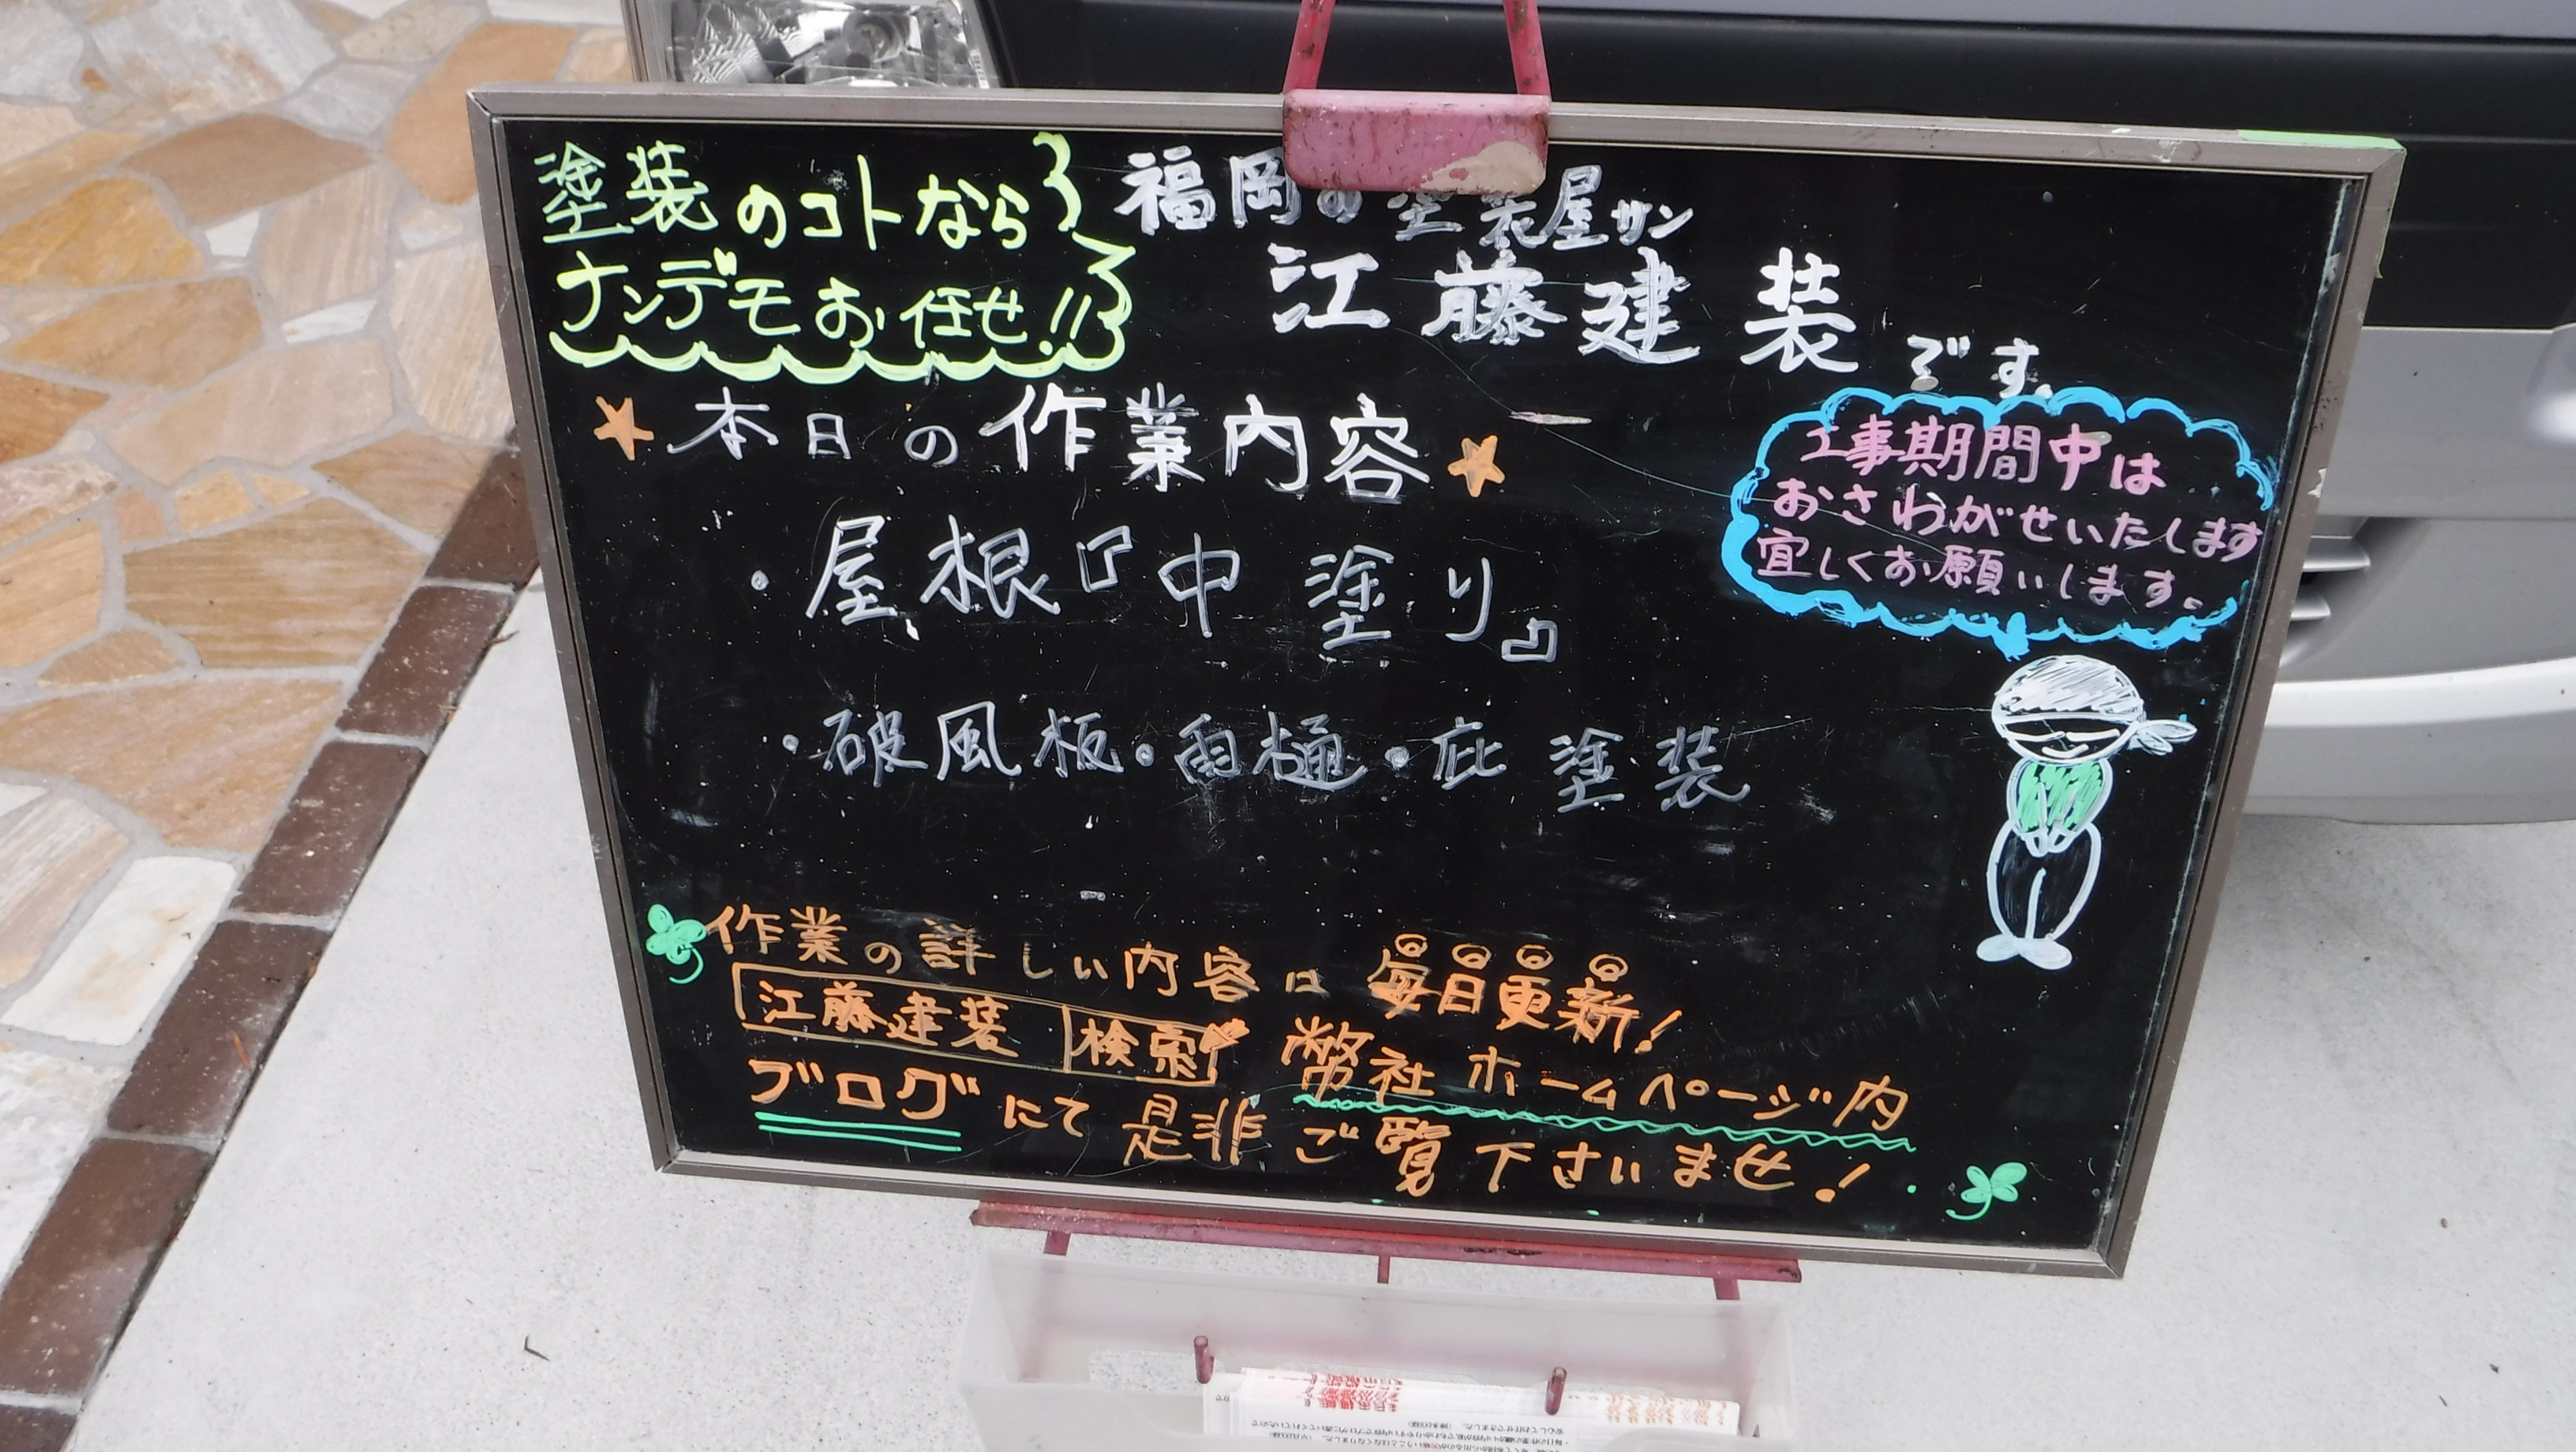 塗装のコトなら
ナンデモお任せ!!
福岡の塗装屋サン
江藤建装です。
本日の作業内容
工事期間中は
おさわがせいたします
宜しくお願いします。
・屋根『中塗り』
・破風板・雨樋・庇塗装
作業の詳しい内容は毎日更新!
江藤建装 検索 弊社ホームページ内
ブログにて是非ご覧下さいませ!